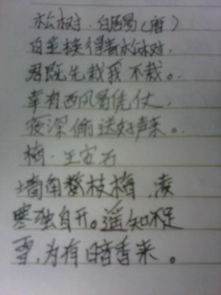 松树.白居易(唐)
白金换得青松树,
君既先栽我不栽。
幸有西风易凭仗,
夜深偷送好声来。
梅.王安石
墙角数枝梅,凌
寒独自开。遥知不是
雪,为有暗香来。